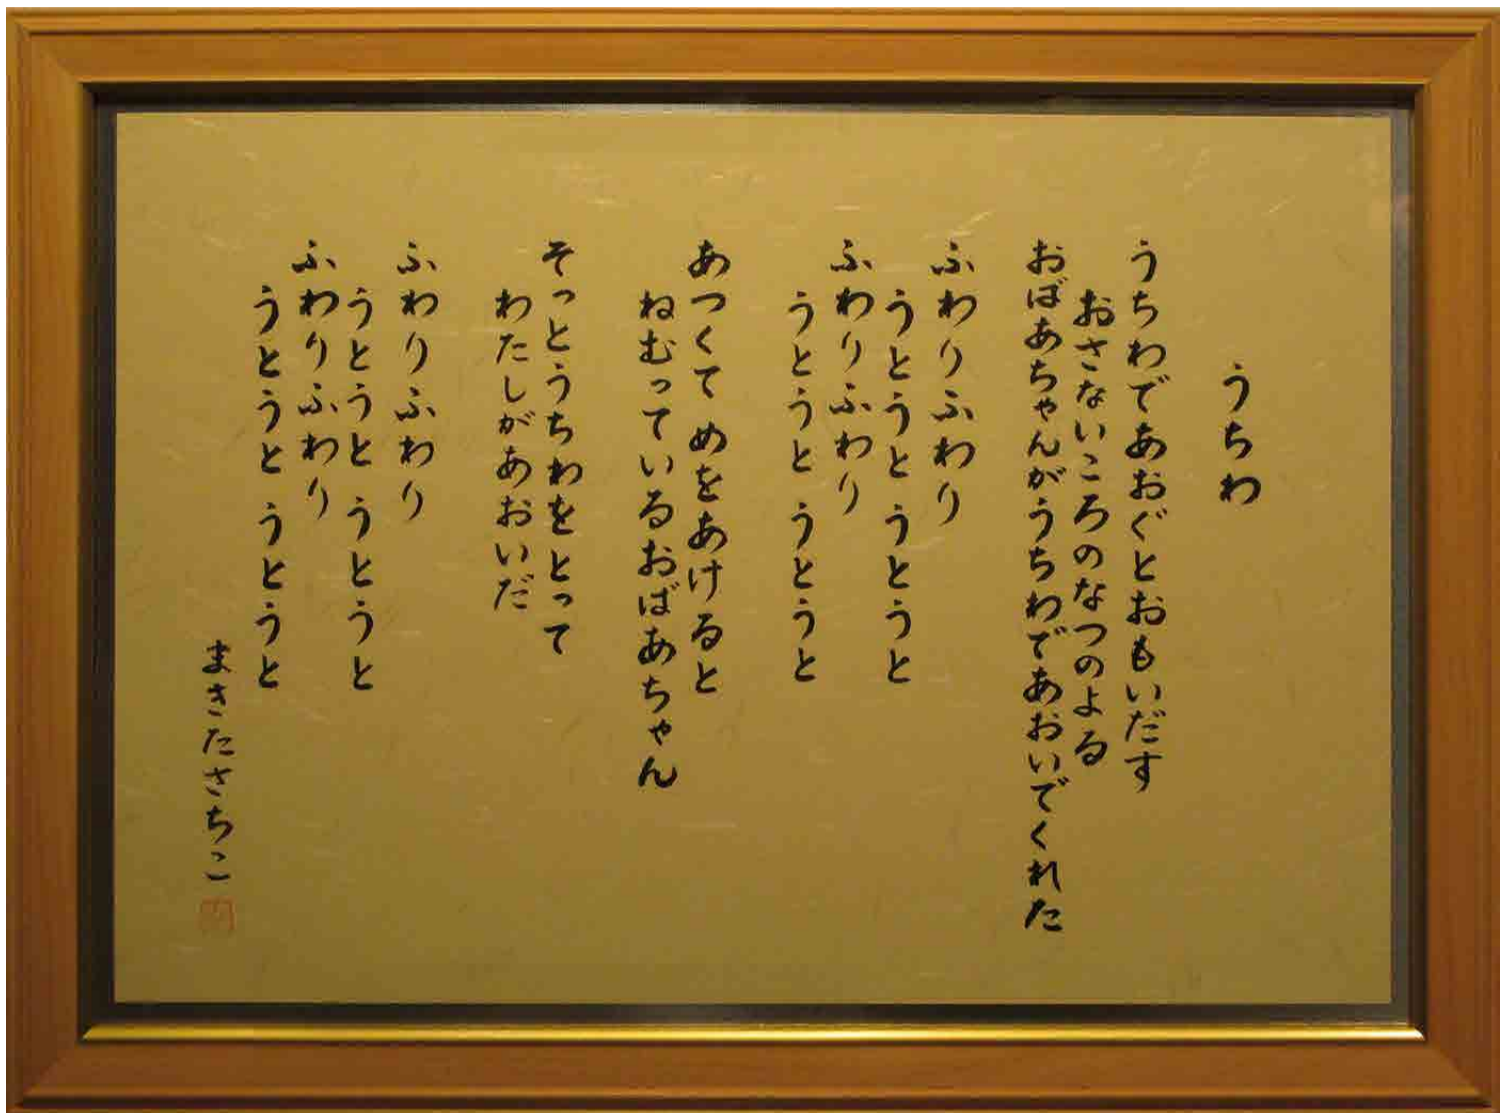 うちわ
うちわであおぐとおもいだす
おさないころのなつのよる
おばあちゃんがうちわであおいでくれた
ふわりふわり
うとうと うとうと
ふわりふわり
うとうと うとうと
あつくて めをあけると
ねむっているおばあちゃん
そっとうちわをとって
わたしがあおいだ
ふわりふわり
うとうと うとうと
ふわりふわり
うとうと うとうと
まきたさちこ